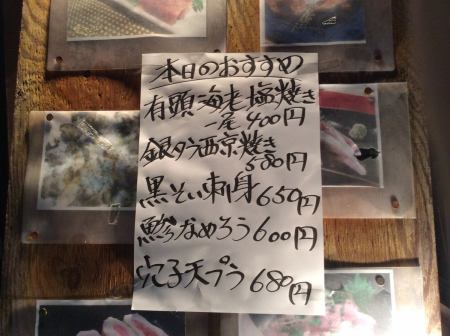 本日のおすすめ
有頭海老塩焼き
一尾400円
銀ダラ西京焼き
580円
黒そい刺身650円
鯵なめろう600円
穴子天プラ680円